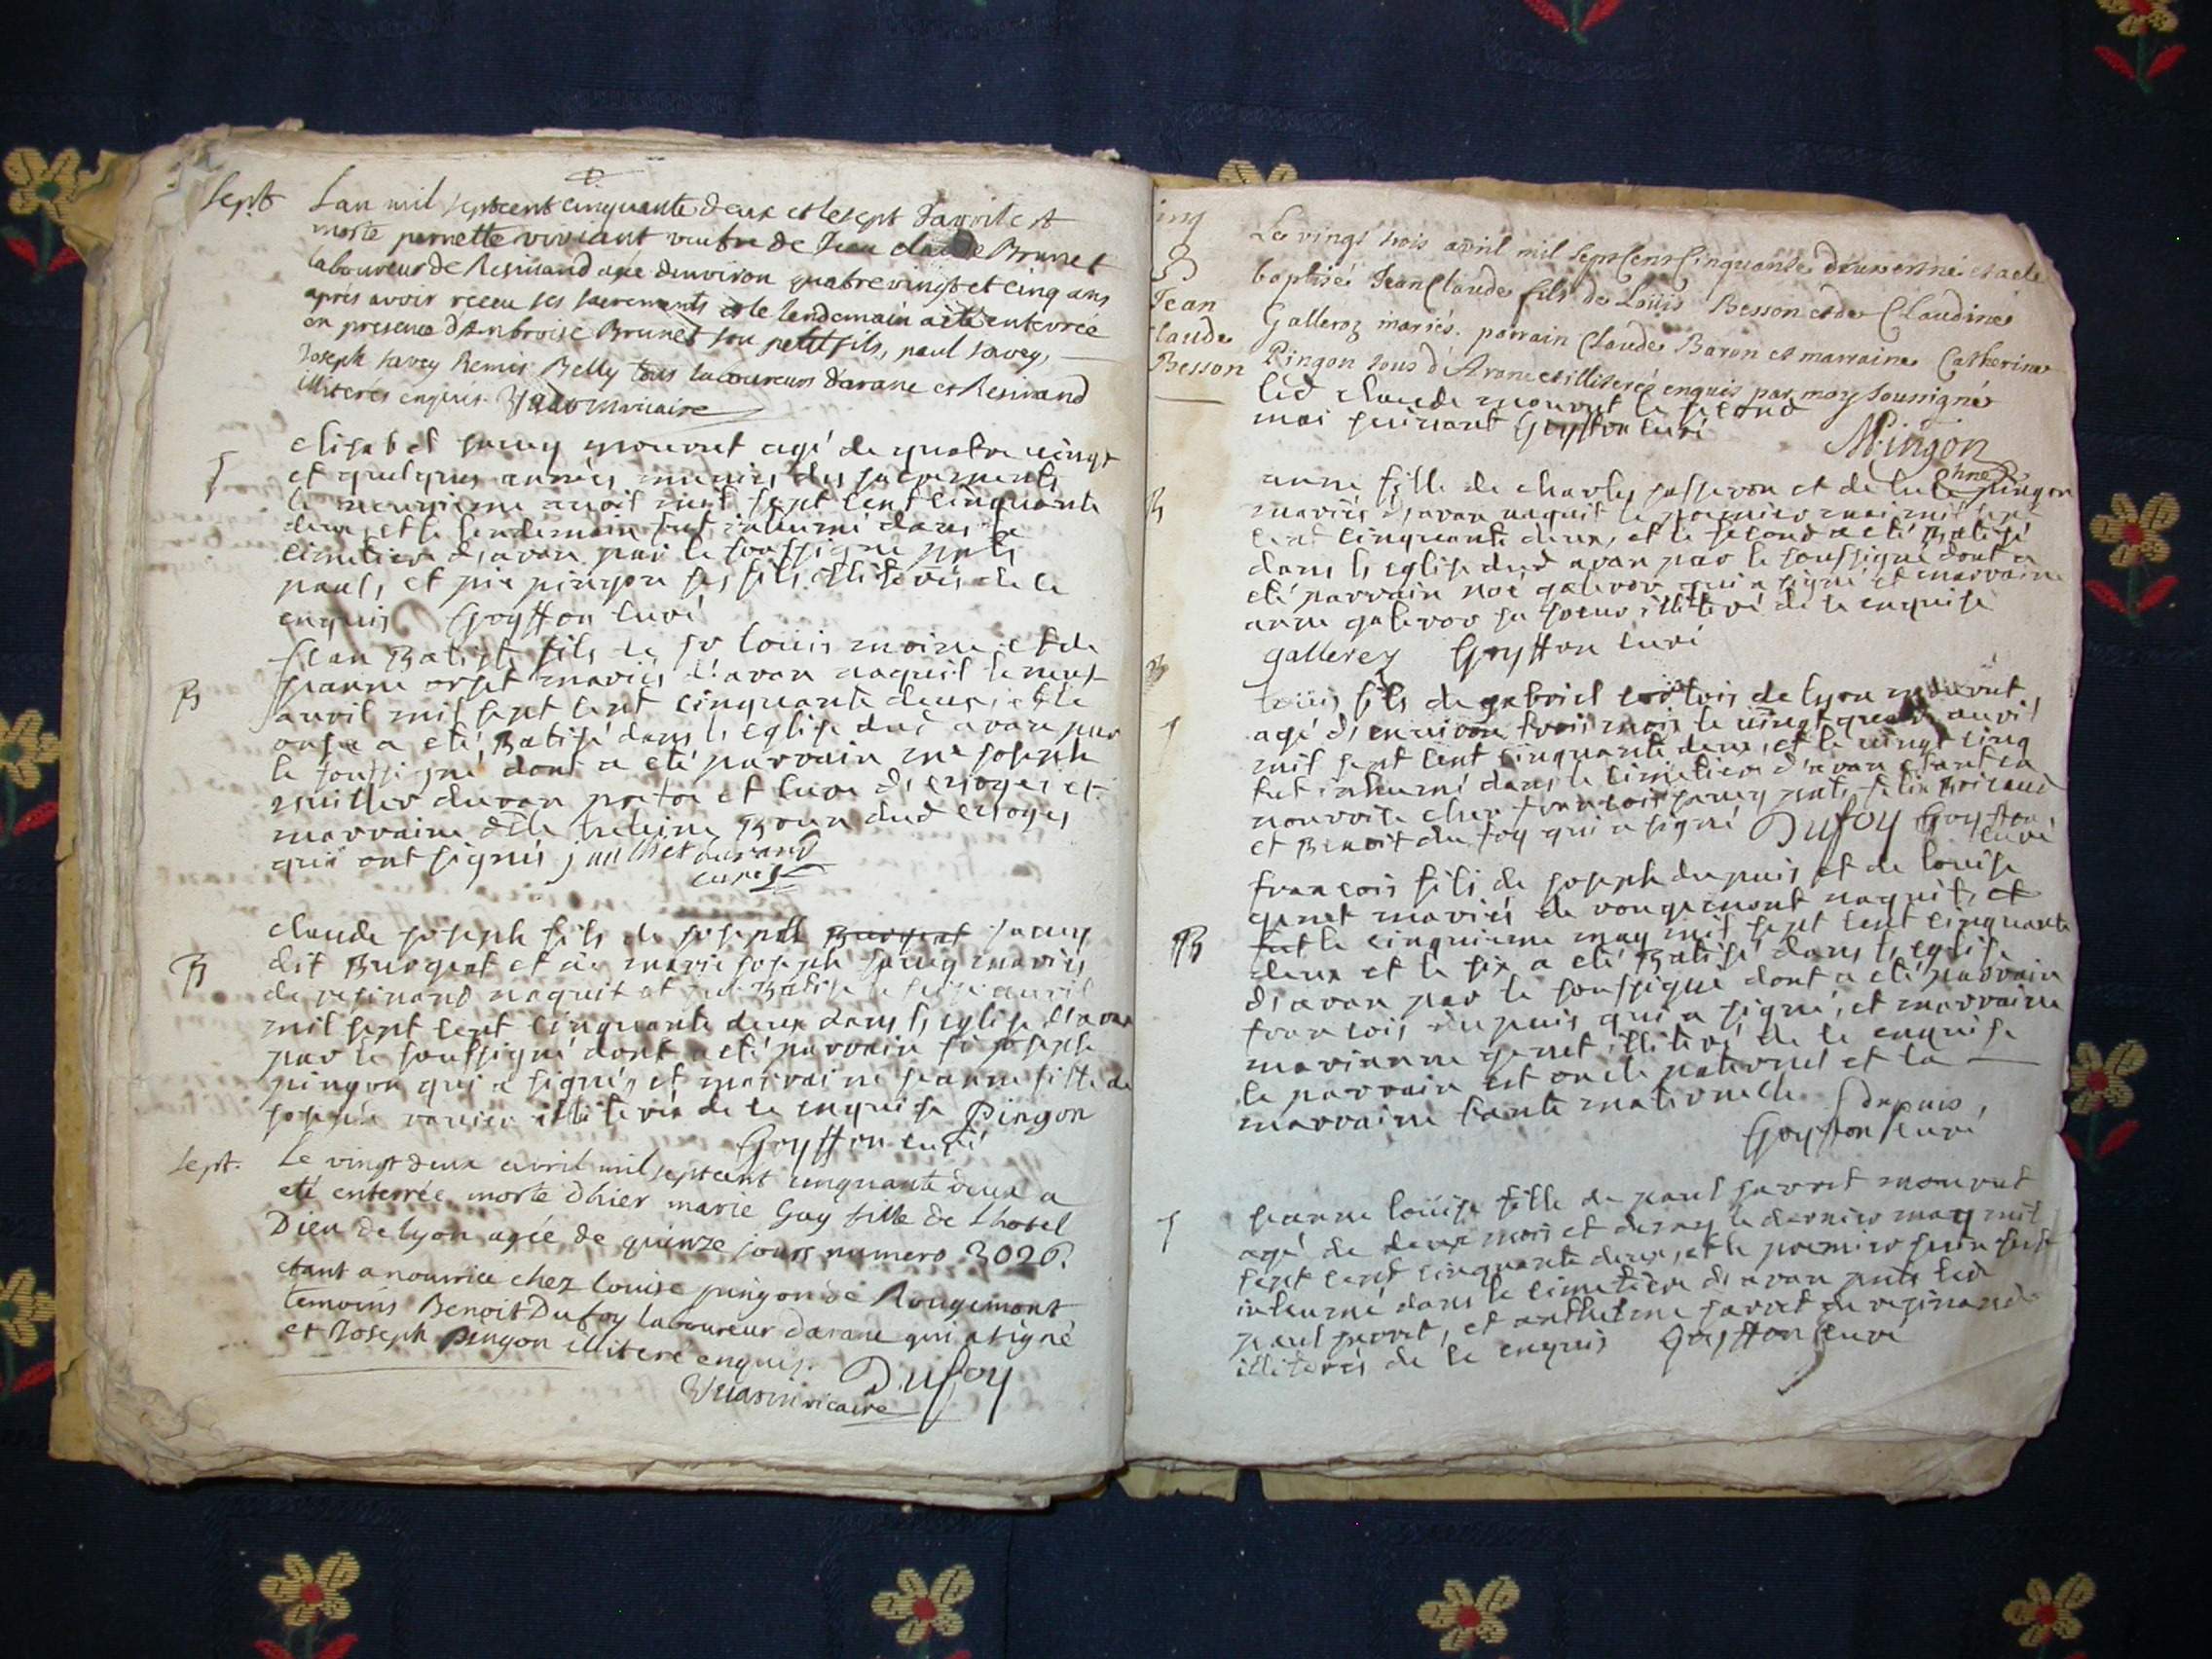 Sept L'an mil septcent cinquante deux et le sept d'avril est
morte pernette vivi ant veufve de Jean claude Brunet
laboureur de Resinand agée d'environ quatre vingt et cinq ans
après avoir receu ses sacrements et le lendemain a été enterrée
en presence d'Ambroise Brunet son petit fils, paul savey,
Joseph savey Remis Belly tous laboureurs d'arane et Resinand
illiteres enquis vicaire
S elisabet savey mourut agé de quatre vingt
et quelques années munies des sacrements
le neuvieme avril mil sept cent cinquante
deux et le lendemain fut inhumé dans le
cimetiere d'aran par le soussigné pnts
paul, et pingon ses fils illiterés de ce
enquis Goyffon curé
Jean Batiste fils de sr louis moine et de
B jeanne orset mariés d'aran naquit le neuf
avril mil sept cent cinquante deux, et le
onse a eté Batisé dans l'eglise dud aran par
le soussigné dont a eté parrain mre joseph
d'aran pretre et cure et
marraine dlle dud
qui ont signés
curé
claude joseph fils de joseph Burgeat savey
B dit Burgeat et de marie joseph savey mariés
de resinand naquit et fut Batisé le avril
mil sept cent cinquante deux dans l'eglise d'aran
par le soussigné dont a eté parrain sr joseph
pingon qui a signé, et marraine jeanne fille de
joseph illiterée de ce enquise Pingon
Goyffon curé
Sept. Le vingt deux avril mil septcent cinquante deux a
eté enterrée morte d'hier marie Guy fille de L'hotel
Dieu de lyon agée de quinze jours numero 3026.
etant a nourrice chez louise pingon de Rougemont
temoins Benoit Dufoy laboureur d'arane qui a signé
et Joseph pingon illiteré enquis.
Dufoy
vicaire
B Le vingt trois avril mil sept cent cinquante deux est né et a eté
Jean baptisé Jean Claude fils de Louis Besson et de Claudine
Claude Galleroz mariés. parrain Claude Baron et marraine Catherine
Besson Pingon tous d'Arane et illiterés enquis par moy soussigné
led claude mourut le second
mai suivant Goyffon curé
Mingon
anne fille de charles passeron et de pingon
B mariés d'aran naquit le premier mai mil sept
cent cinquante deux, et le second a eté Batisé
dans l'eglise dud aran par le soussigné dont a
eté parrain noé galeror qui a signé et marraine
anne galeror sa soeur illiteré de ce enquise
gallerey Goyffon curé
B louis fils de gabriel de lyon mourut
S agé d'environ trois mois le vingt quatre avril
mil sept cent cinquante deux, et le vingt cinq
fut inhumé dans le cimetiere d'aran etant en
nourrice chez francois savey pnts
et Benoit du foy qui a signé Dufoy Goyffon
curé
francois fils de joseph dupuis et de louise
genet mariés de rougemont naquit, et
B fut le cinquieme may mil sept cent cinquante
deux et le six a eté Batisé dans l'eglise
d'aran par le soussigné dont a eté parrain
francois dupuis qui a signé, et marraine
marianne genet illiteré de ce enquise
le parrain est oncle paternel et la
marraine tante maternelle dupuis,
Goyffon curé
jeanne louise fille de paul savet mourut
S agé de deux mois et demy le dernier may mil
sept cent cinquante deux, et le premier juin fust
inhumé dans le cimetiere d'aran pnts led
paul savet, et anthelme savet de resinand
illiterés de ce enquis Goyffon curé